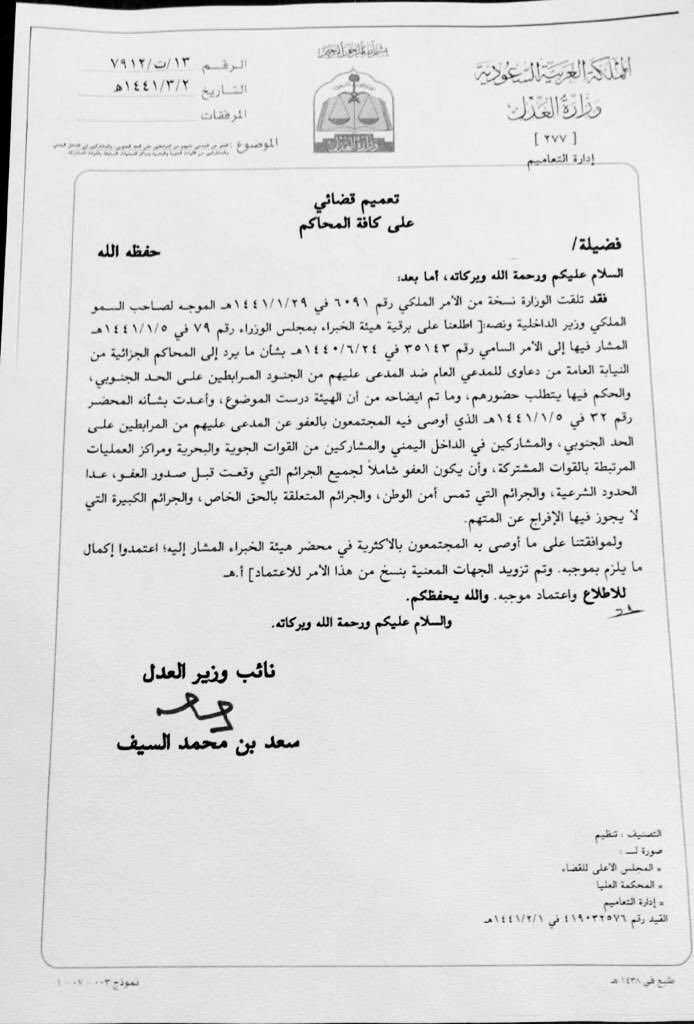 المملكة العربية السعودية
وزارة العدل
[ ٢٧٧ ]
إدارة التعاميم
بسم الله الرحمن الرحيم
وزارة العدل
الرقم ١٣/ت/٧٩١٢
التاريخ ١٤٤١/٣/٢هـ
المرفقات
الموضوع : العفو عن المدعى عليهم من المرابطين على الحد الجنوبي، والمشاركين في الداخل اليمني
والمشاركين من القوات الجوية والبحرية ومراكز العمليات المرتبطة بالقوات المشتركة
تعميم قضائي
على كافة المحاكم
فضيلة/ حفظه الله
السلام عليكم ورحمة الله وبركاته، أما بعد:
فقد تلقت الوزارة نسخة من الأمر الملكي رقم ٦٠٩١ في ١٤٤١/١/٢٩هـ الموجه لصاحب السمو
الملكي وزير الداخلية ونصه:[ اطلعنا على برقية هيئة الخبراء بمجلس الوزراء رقم ٧٩ في ١٤٤١/١/٥هـ
المشار فيها إلى الأمر السامي رقم ٣٥١٤٣ في ١٤٤٠/٦/٢٤هـ بشأن ما يرد إلى المحاكم الجزائية من
النيابة العامة من دعاوى للمدعي العام ضد المدعى عليهم من الجنود المرابطين على الحد الجنوبي،
والحكم فيها يتطلب حضورهم، وما تم ايضاحه من أن الهيئة درست الموضوع، وأعدت بشأنه المحضر
رقم ٣٢ في ١٤٤١/١/٥هـ الذي أوصى فيه المجتمعون بالعفو عن المدعى عليهم من المرابطين على
الحد الجنوبي، والمشاركين في الداخل اليمني والمشاركين من القوات الجوية والبحرية ومراكز العمليات
المرتبطة بالقوات المشتركة، وأن يكون العفو شاملاً لجميع الجرائم التي وقعت قبل صدور العفو، عدا
الحدود الشرعية، والجرائم التي تمس أمن الوطن، والجرائم المتعلقة بالحق الخاص، والجرائم الكبيرة التي
لا يجوز فيها الإفراج عن المتهم.
ولموافقتنا على ما أوصى به المجتمعون بالأكثرية في محضر هيئة الخبراء المشار إليه؛ اعتمدوا إكمال
ما يلزم بموجبه. وتم تزويد الجهات المعنية بنسخ من هذا الأمر للاعتماد] أ.هـ
للاطلاع واعتماد موجبه. والله يحفظكم.
والسلام عليكم ورحمة الله وبركاته.
نائب وزير العدل
سعد بن محمد السيف
التصنيف : تنظيم
صورة لـــ :
• المجلس الأعلى للقضاء
• المحكمة العليا
• إدارة التعاميم
القيد رقم ٤١٩٠٣٢٥٧٦ في ١٤٤١/٢/١هـ
طبع في ١٤٣٨ هـ
نموذج ٠٠٣ - ٠٧ - ١